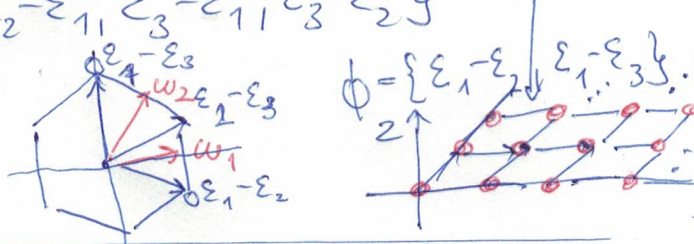 ₂-ε₁, ε₃-ε₁, ε₃ ε₂}
ε₁-ε₃
ω₂ ε₂-ε₃
ω₁
ε₁-ε₂
Φ={ε₁-ε₂ ε₁-ε₃}
2